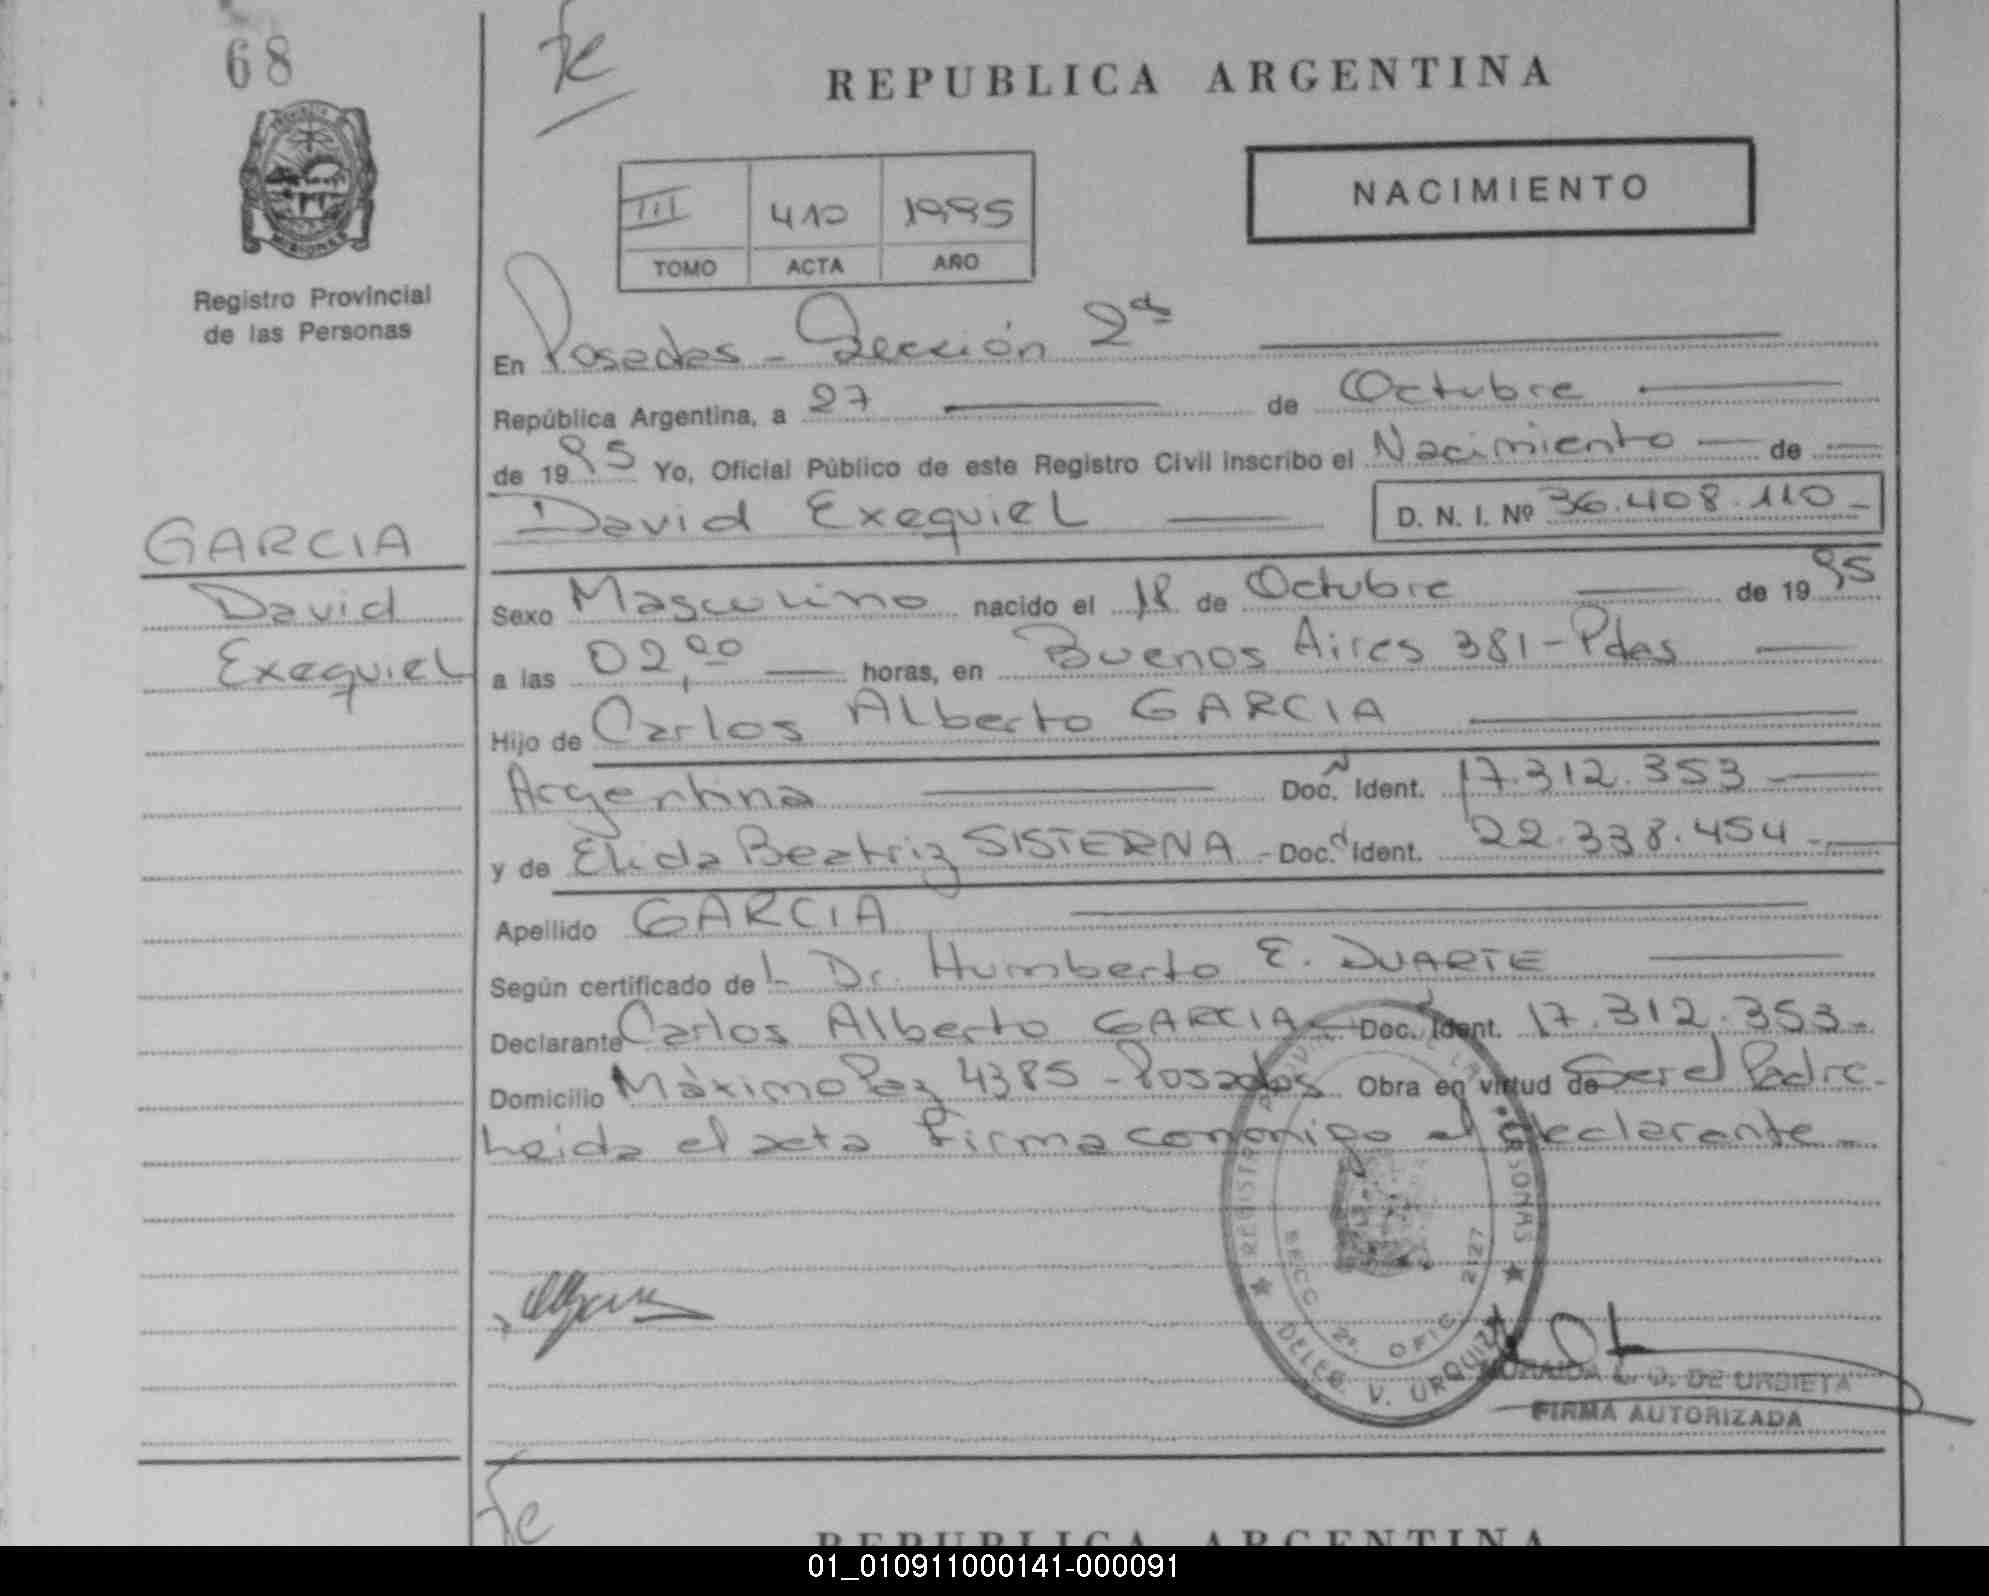 68
REPUBLICA ARGENTINA
NACIMIENTO
III 410 1995
TOMO ACTA AÑO
Registro Provincial
de las Personas
En Posadas - Sección 2da
República Argentina, a 27 de Octubre
de 1995 Yo, Oficial Público de este Registro Civil inscribo el Nacimiento de
David Exequiel D. N. I. Nº 36.408.110-
GARCIA
David
Exequiel
Sexo Masculino nacido el 18 de Octubre de 1995
a las 02,00 horas, en Buenos Aires 381-Pdas
Hijo de Carlos Alberto GARCIA
Argentina Doc. Ident. 17.312.353-
y de Elida Beatriz SISTERNA - Doc. Ident. 22.338.454-
Apellido GARCIA
Según certificado del Dr. Humberto E. DUARTE
Declarante Carlos Alberto GARCIA - Doc. Ident. 17.312.353-
Domicilio Máximo Paz 4385 - Posadas Obra en virtud de Ser el Padre-
Leida el acta firma conmigo el declarante-
REGISTRO PROVINCIAL DE LAS PERSONAS
SECC. 2ª. OFIC. 2127
DELEG. V. URQUIZA
DE URDIETA
FIRMA AUTORIZADA
REPUBLICA ARGENTINA
01_010911000141-000091